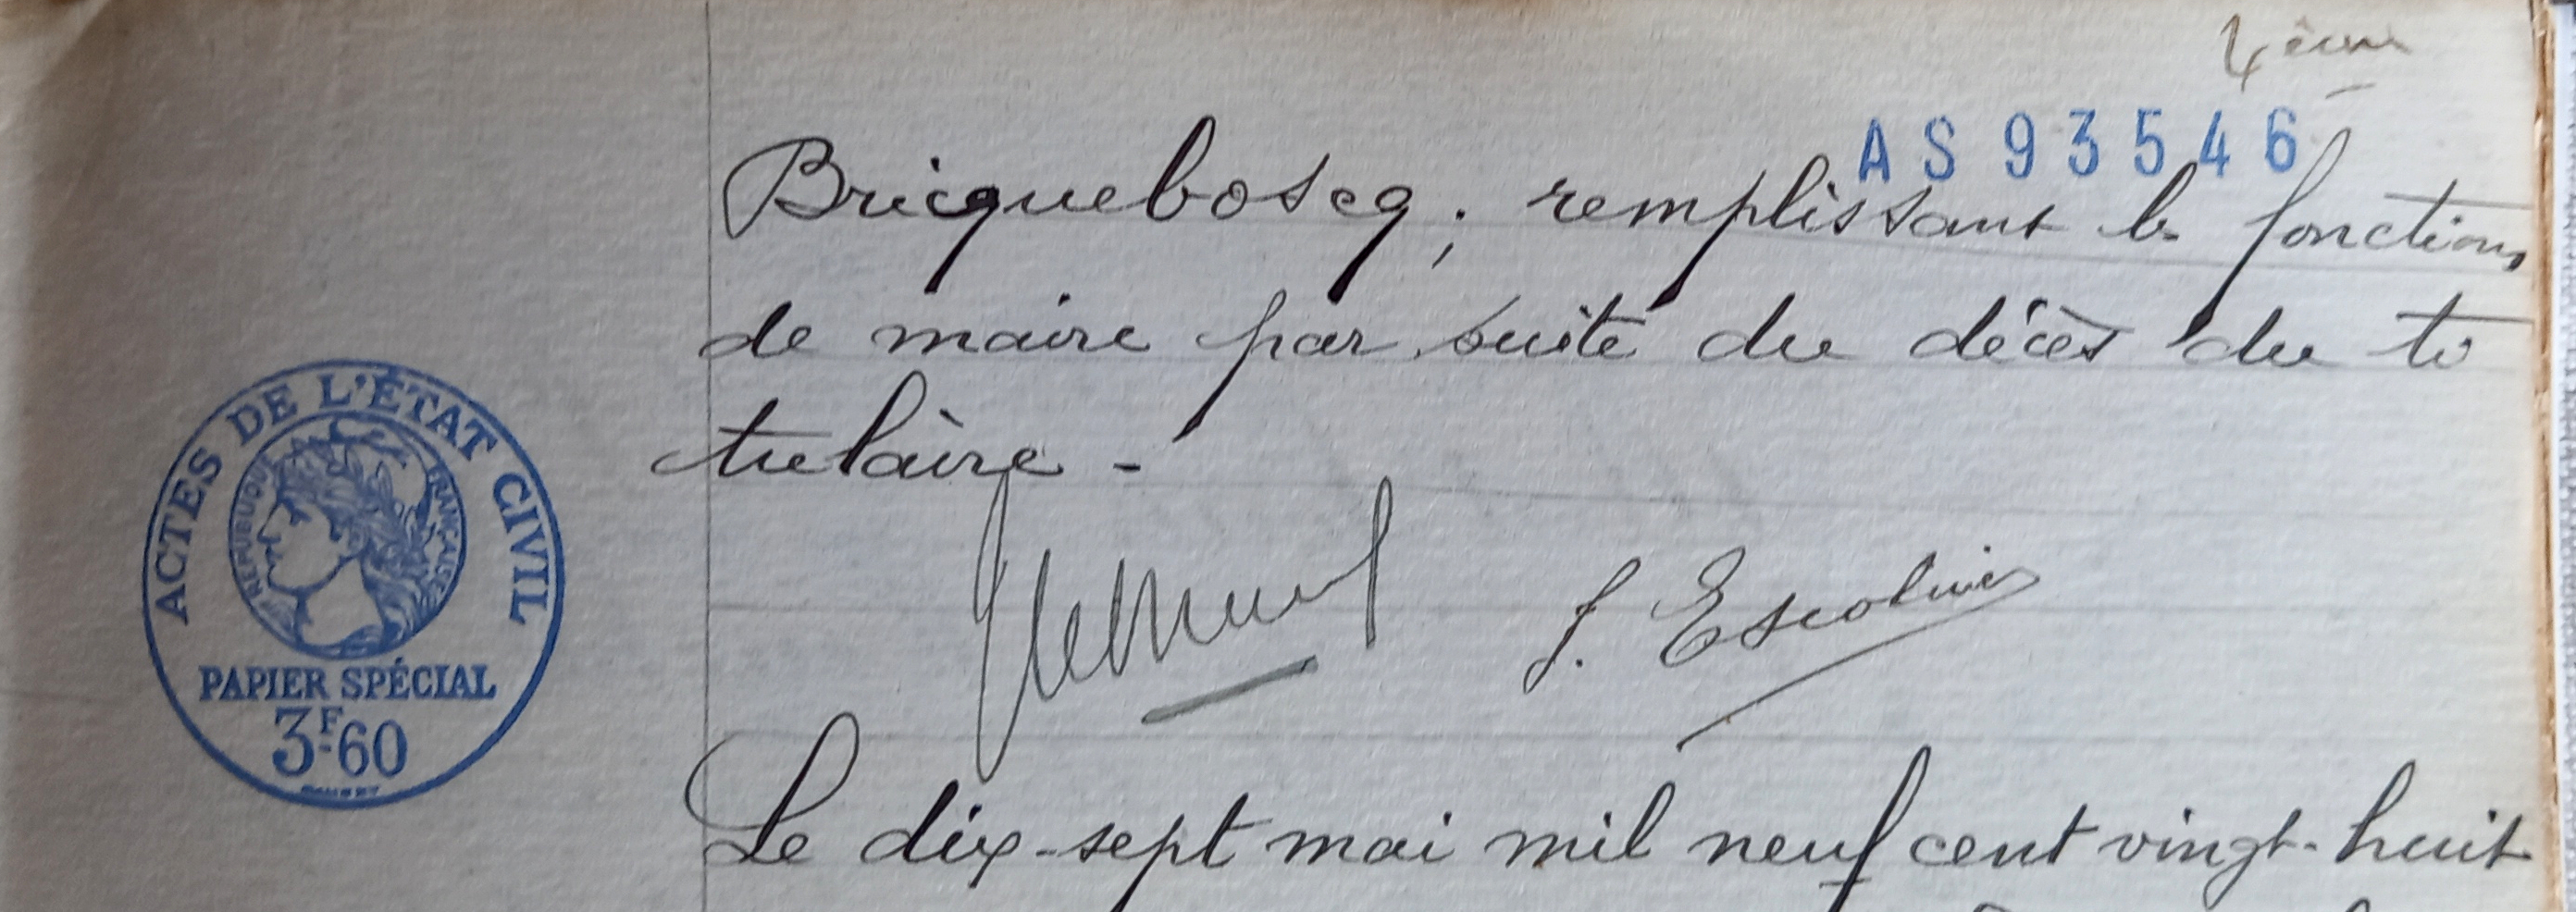 4ème
AS93546
Bricqueboscq, remplissant les fonctions
de maire par suite du décès du ti
tulaire -
J. Escolivier
ACTES DE L'ÉTAT CIVIL
RÉPUBLIQUE FRANÇAISE
PAPIER SPÉCIAL
3F.60
Le dix-sept mai mil neuf cent vingt-huit